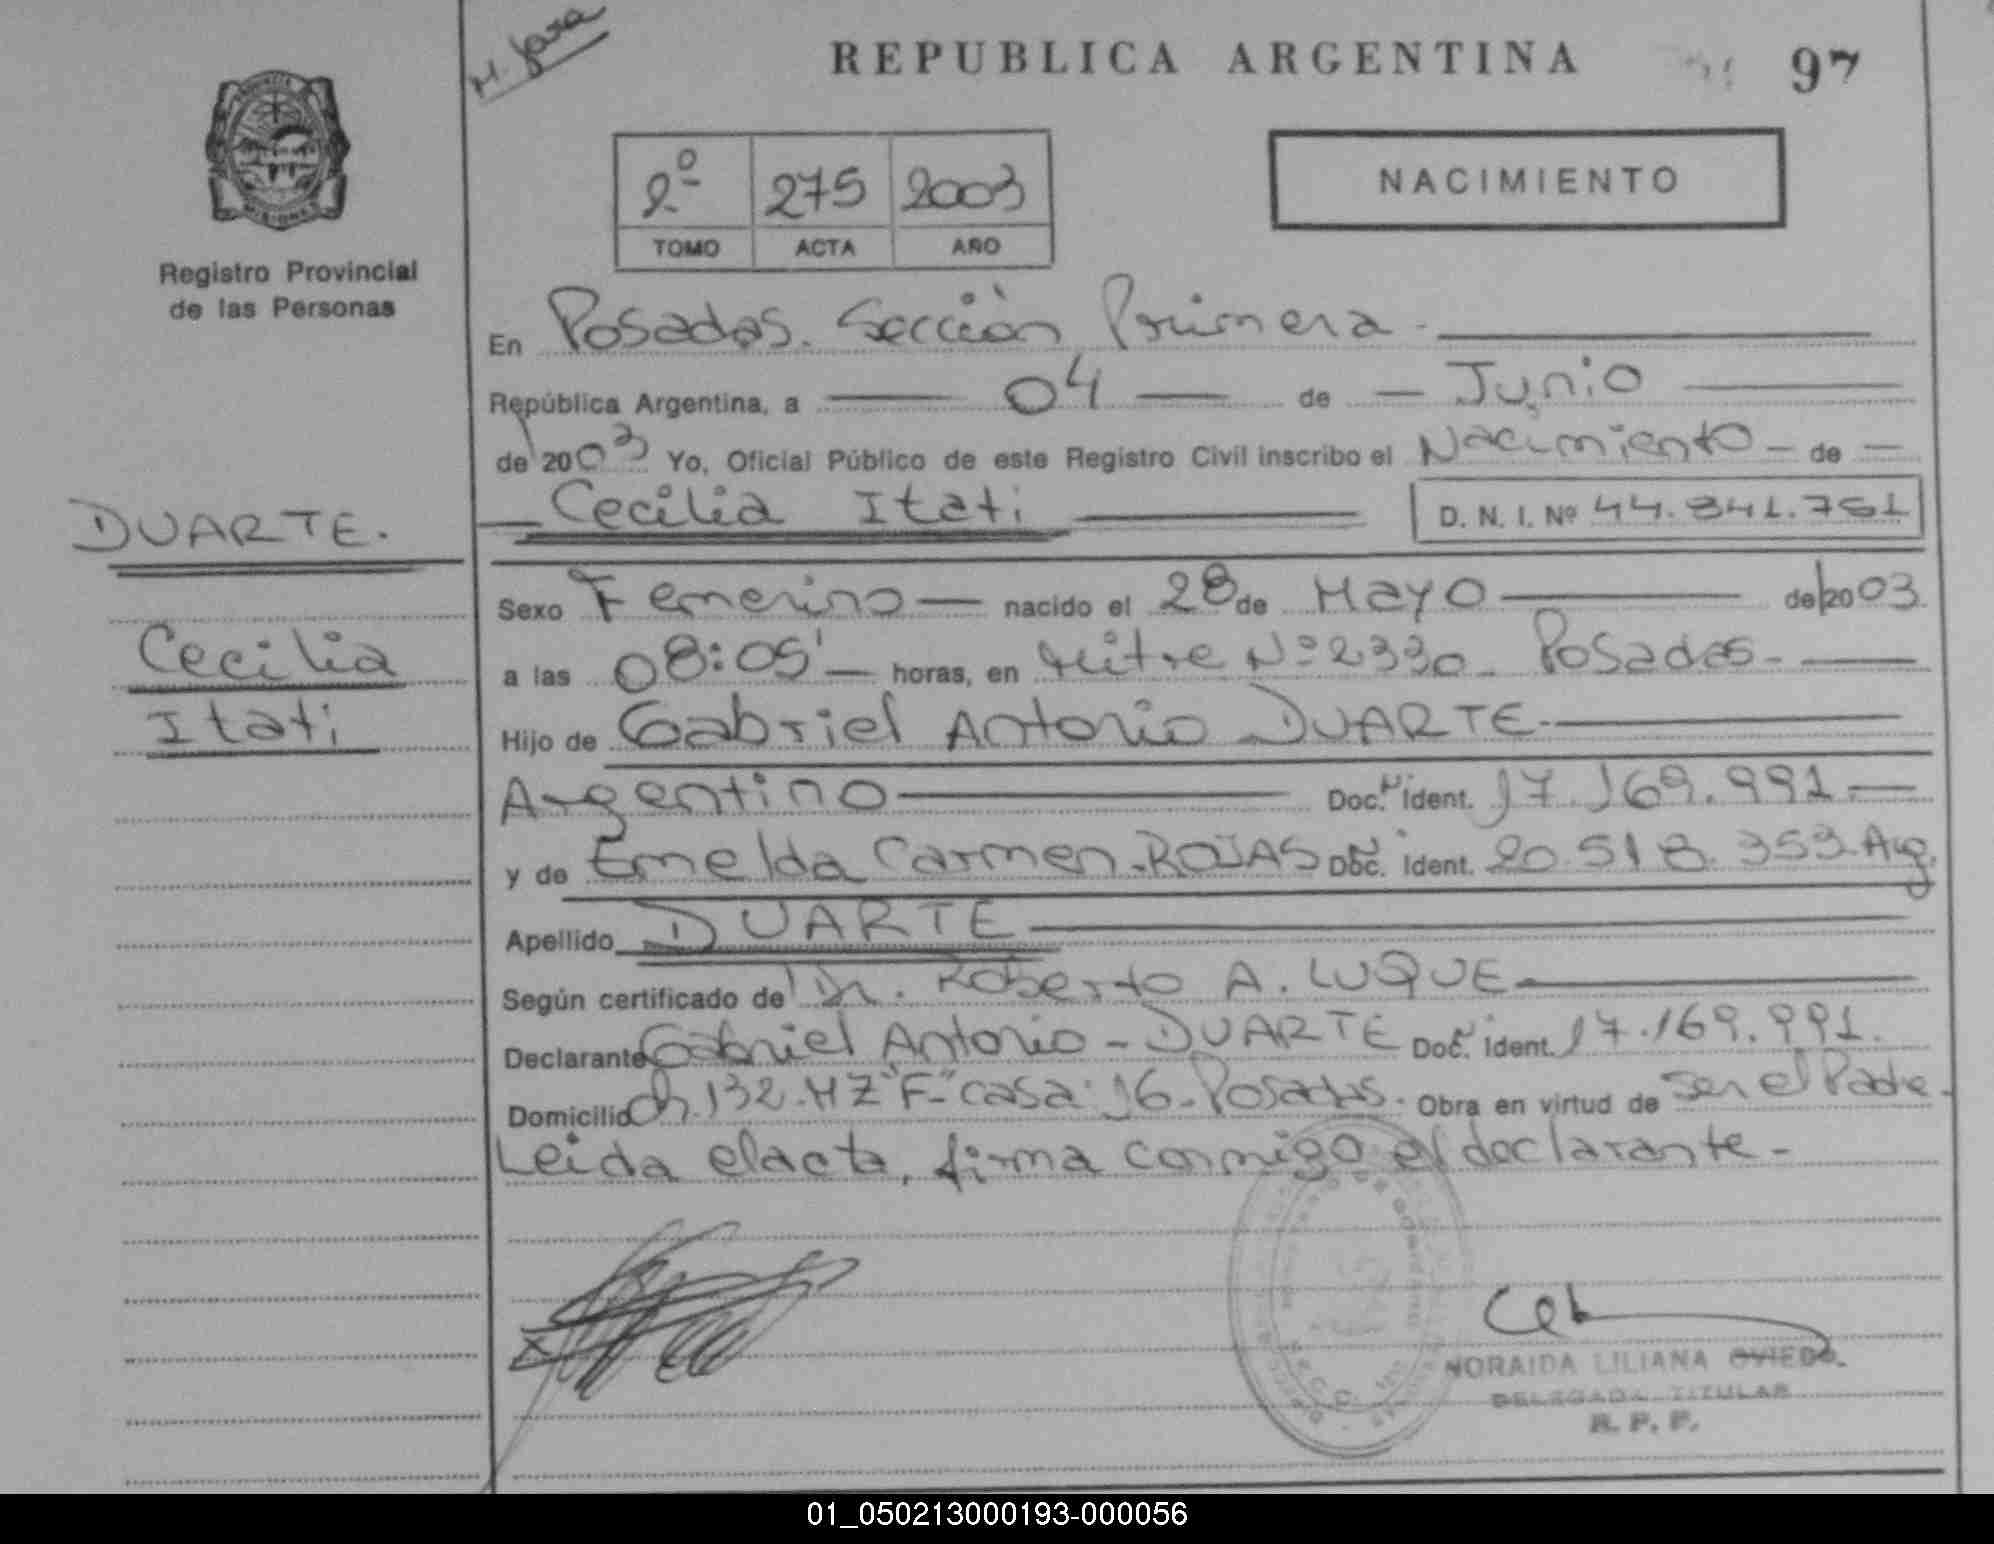 M. Jara
REPUBLICA ARGENTINA
97
2º 275 2003
TOMO ACTA AÑO
NACIMIENTO
MISIONES
Registro Provincial
de las Personas
En Posadas. Sección Primera.
República Argentina, a 04 de Junio
de 2003 Yo, Oficial Público de este Registro Civil inscribo el Nacimiento de
Cecilia Itati
D. N. I. Nº 44.841.751
DUARTE.
Cecilia
Itati
Sexo Femenino nacido el 28 de Mayo de 2003
a las 08:05' horas, en Mitre Nº 2330 Posadas.
Hijo de Gabriel Antonio DUARTE.
Argentino Doc. Ident. 17.169.991.
y de Emelda Carmen ROJAS Doc. Ident. 20.518.353 Arg.
Apellido DUARTE
Según certificado de Dr. Roberto A. LUQUE
Declarante Gabriel Antonio DUARTE Doc. Ident. 17.169.991.
Domicilio Ch. 132. MZ "F" casa 16. Posadas. Obra en virtud de ser el Padre.
Leida el acta, firma conmigo el declarante.
NORAIDA LILIANA OVIEDO.
DELEGADA TITULAR
R. P. P.
01_050213000193-000056